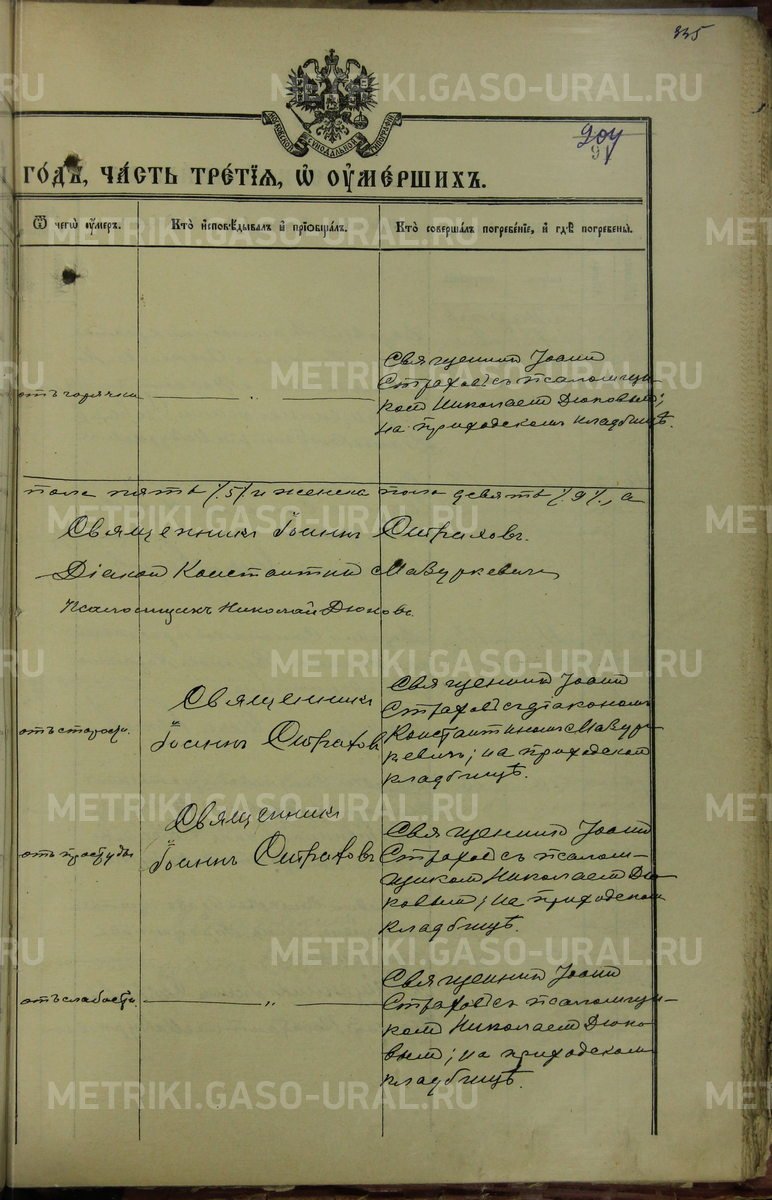 335
204
91
МОСКОВСКОЙ СѴНОДАЛЬНОЙ ТИПОГРАФІИ
ГОДЪ, ЧАСТЬ ТРЕТІЯ, Ѡ ОУМЕРШИХЪ.
Ѿ чегѡ оумеръ.
Кто исповѣдывалъ и пріобщалъ.
Кто совершалъ погребеніе, и гдѣ погребены.
отъ горячки
— „ —
Священник Іоанн
Страхов съ псаломщи-
ком Николаем Дюковым;
на приходском кладбищѣ.
пола пять /.5/ и женска пола девять /.9/., а
Священникъ Іоаннъ Страховъ.
Діакон Константин Мазуркевич
Псаломщикъ Николай Дюковъ.
отъ старости.
Священникъ
Іоаннъ Страховъ
Священник Іоанн
Страхов съ діаконом
Константином Мазур-
кевич; на приходском
кладбищѣ.
отъ простуды
Священникъ
Іоаннъ Страховъ
Священник Іоанн
Страхов съ псалом-
щиком Николаем Дю-
ковым; на приходском
кладбищѣ.
отъ слабости.
— „ —
Священник Іоанн
Страхов съ псаломщи-
ком Николаем Дюко-
вым; на приходском
кладбищѣ.
METRIKI.GASO-URAL.RU